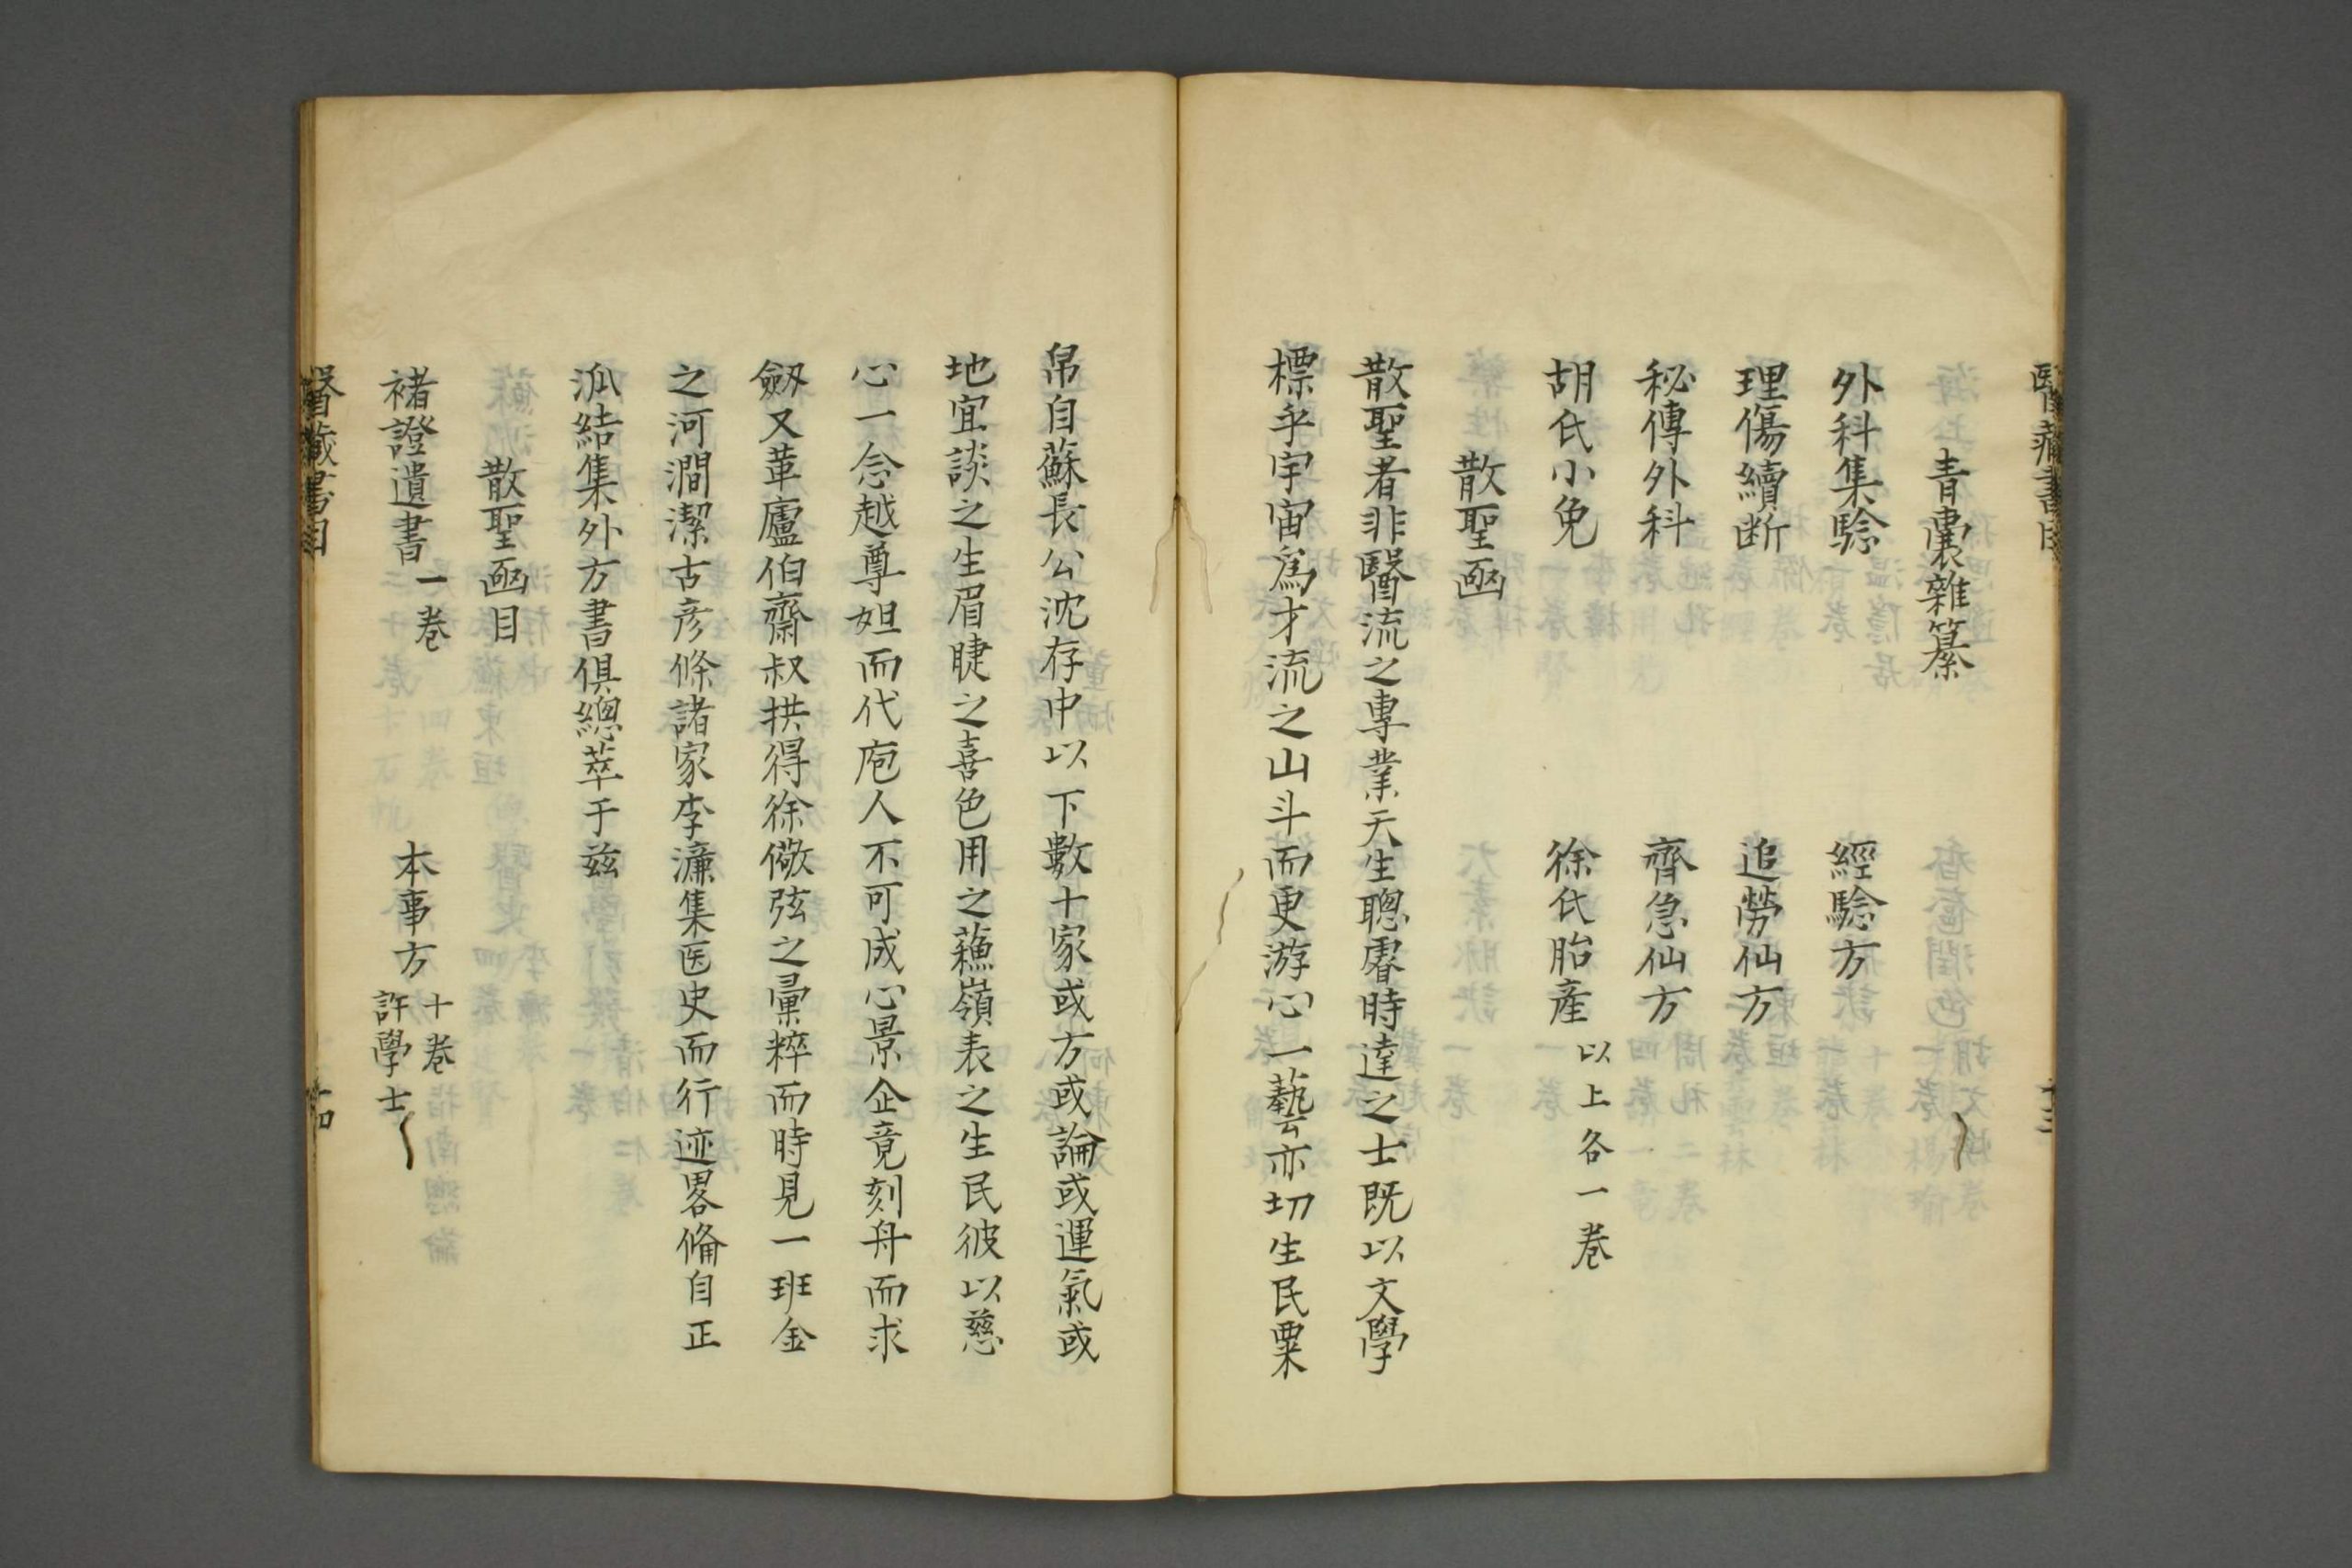 青囊雜纂
外科集驗 經驗方
理傷續断 追勞仙方
秘傳外科 齊急仙方
胡氏小免 徐氏胎產 以上各一卷
散聖函
散聖者非醫流之專業天生聰睿時達之士既以文學
標乎宇宙爲才流之山斗而更游心一藝亦切生民粟
帛自蘇長公沈存中以下數十家或方或論或運氣或
地宜談之生眉睫之喜色用之蘓嶺表之生民彼以慈
心一念越尊俎而代庖人不可成心景企竟刻舟而求
劔又革廬伯齋叔拱得徐儆弦之彚粹而時見一班金
之河澗潔古彦條諸家李濂集医史而行迹畧俻自正
派結集外方書俱總萃于兹
散聖函目
褚證遺書 一卷 本事方 十卷 許學士
醫藏書目 十四